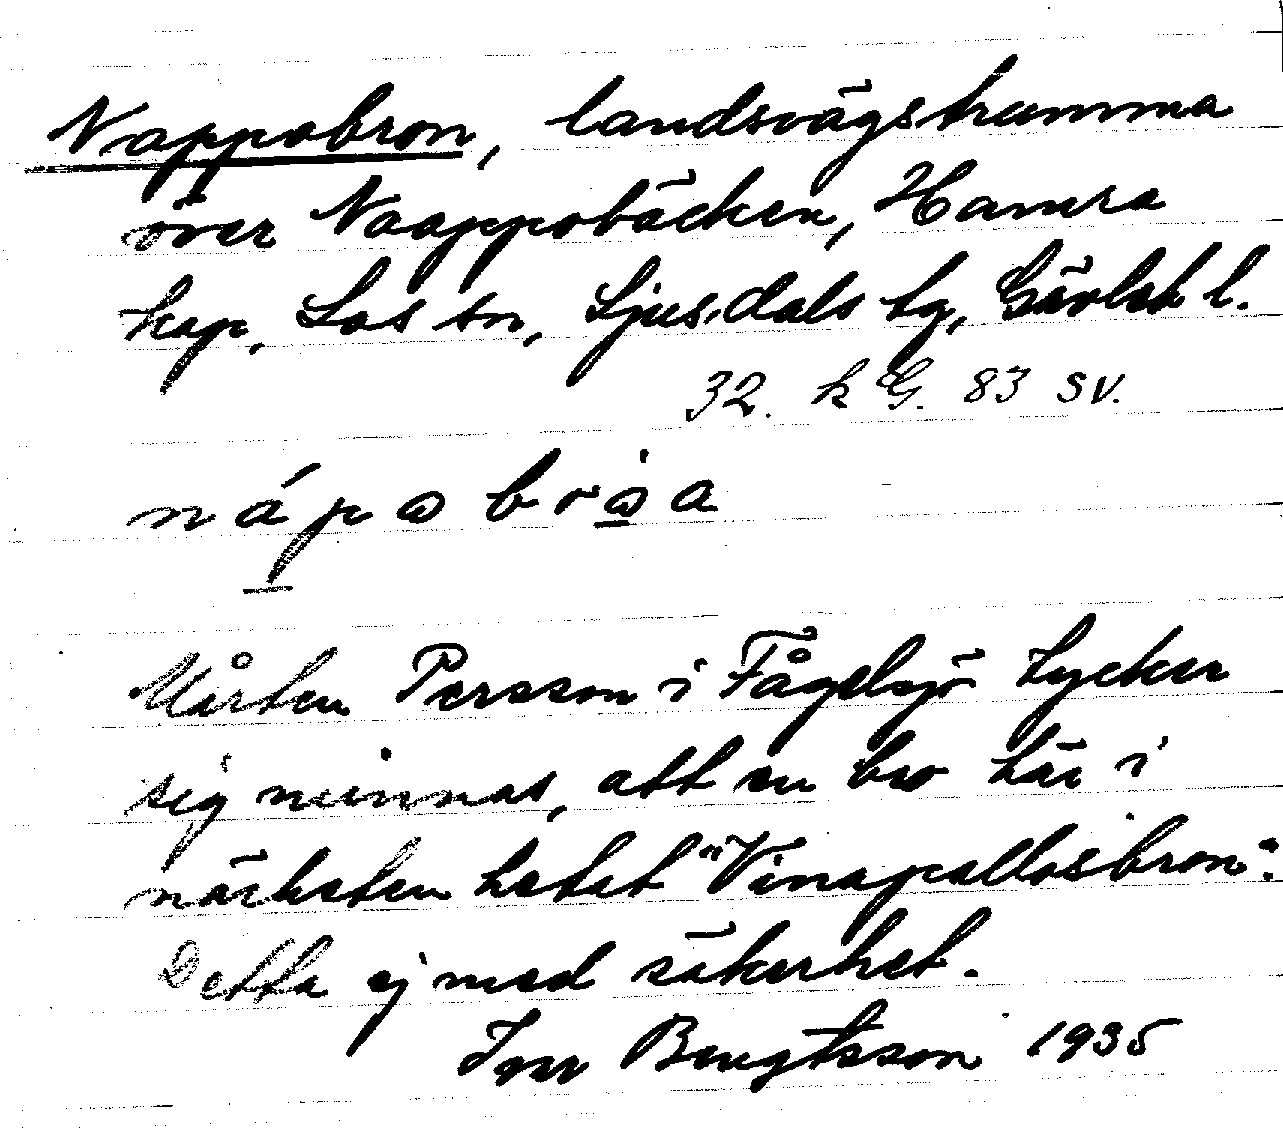 Nappobron, landsvägstrumma
över Naappobäcken, Hamra
kap, Los sn, Ljusdals tg, Gävleb l.
32. k G. 83 SV.
Mårten Persson i Fågelsjö tycker
sig minnas, att en bro här i
närheten hetat "Vinapallosbron".
Detta ej med säkerhet.
Ivar Bengtsson 1935